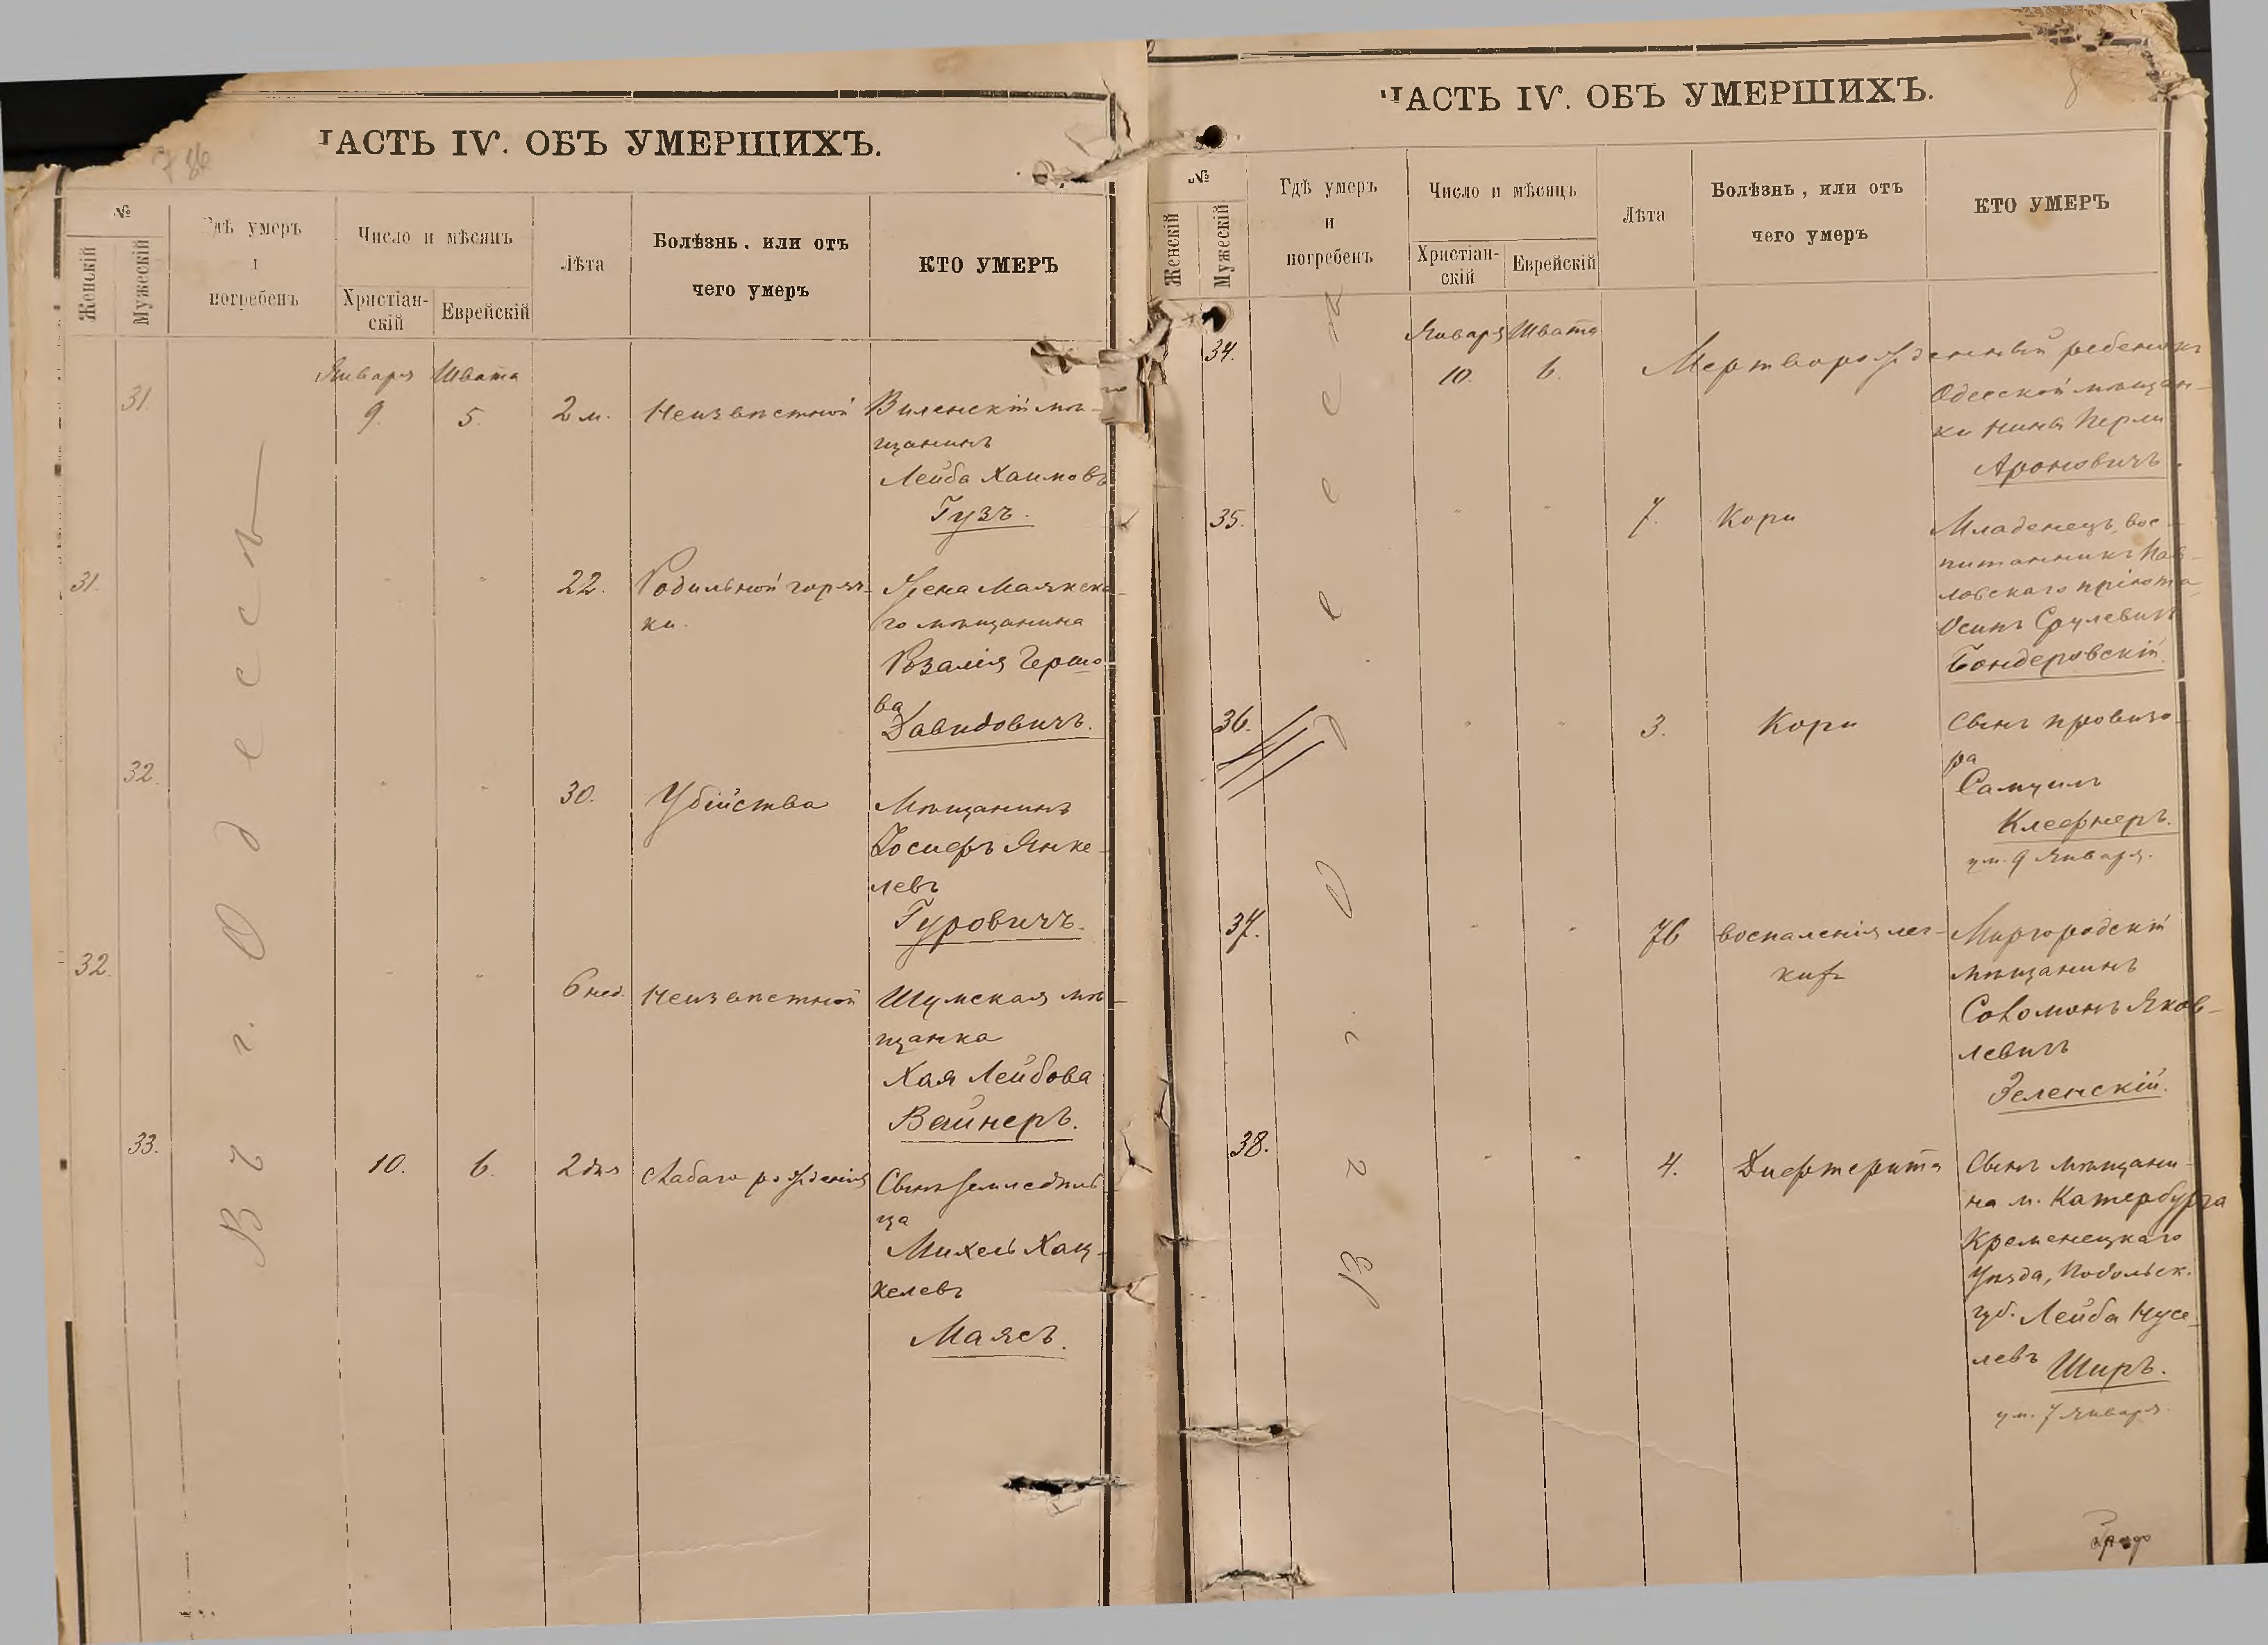 ЧАСТЬ IV. ОБЪ УМЕРШИХЪ.
786
№
Женскій
Мужескій
Гдѣ умеръ
и
погребенъ
Число и мѣсяцъ
Христіан-
скій
Еврейскій
Лѣта
Болѣзнь, или отъ
чего умеръ
КТО УМЕРЪ
В г. Одессѣ
Января Швата
31. 9. 5. 2 м. Неизвѣстной Виленскій мѣ-
щанинъ
Лейба Хаимовъ
Гузъ.
31. " " 22. Родильной горяч- Жена Маякска-
ки. го мѣщанина
Розалія Гершо-
ва
Давидовичъ.
32. " " 30. Убійства Мѣщанинъ
Іосифъ Янке-
левъ
Гуровичъ.
32. " " 6 нед. Неизвѣстной Шумская мѣ-
щанка
Хая Лейбова
Вайнеръ.
33. 10. 6. 2 дня Слабаго рожденія Сынъ земледѣль-
ца
Михель Хац-
келевъ
Маясъ.
ЧАСТЬ IV. ОБЪ УМЕРШИХЪ.
8
№
Женскій
Мужескій
Гдѣ умеръ
и
погребенъ
Число и мѣсяцъ
Христіан-
скій
Еврейскій
Лѣта
Болѣзнь, или отъ
чего умеръ
КТО УМЕРЪ
В г. Одессѣ
Января Швата
34. 10. 6. Мертворожденный ребенокъ
Одесской мѣщан-
ки Нина Перли
Ароновичъ.
35. " " 7. Кори Младенецъ, вос-
питанникъ Пав-
ловскаго пріюта,
Осипъ Срулевичъ
Бондеровскій.
36. " " 3. Кори Сынъ провизо-
ра
Самуилъ
Клефнеръ.
ум. 9 Января.
37. " " 76 воспаленія лег- Миргородскій
кихъ мѣщанинъ
Соломонъ Яков-
левичъ
Зеленскій.
38. " " 4. Дифтерита Сынъ мѣщани-
на м. Катербурга
Кременецкаго
Уѣзда, Подольск.
губ. Лейба Нусе-
левъ Ширъ.
ум. 7 Января.